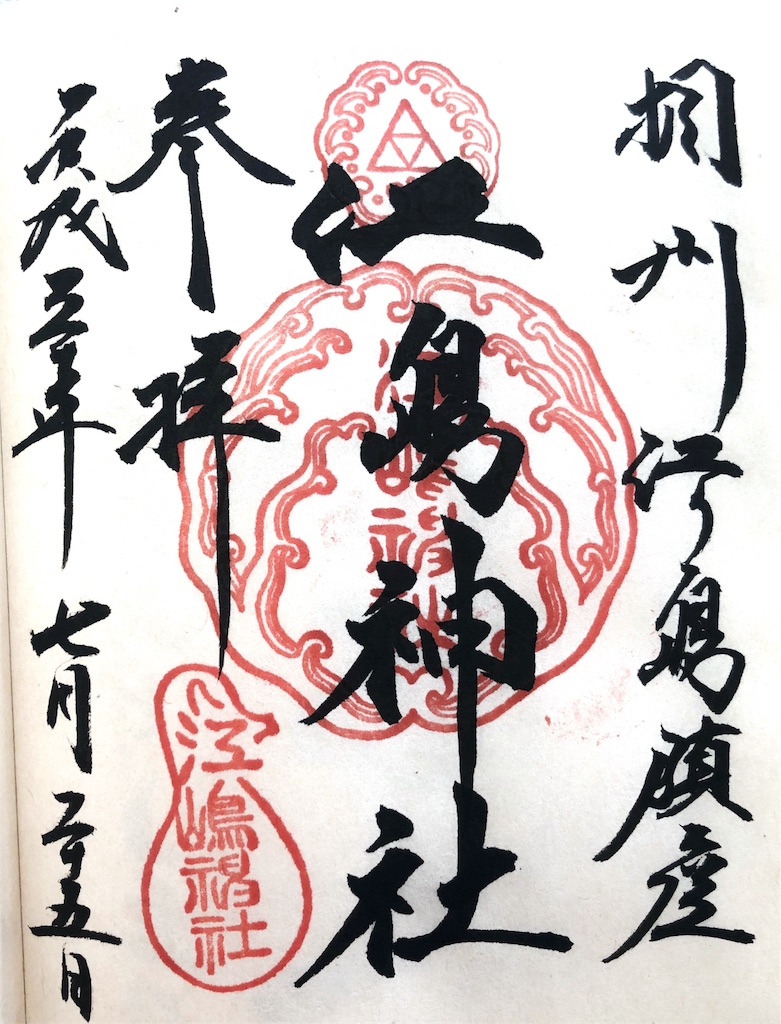 相州江ノ島鎮座
江島神社
奉拝
平成三十年七月二十五日
江嶋神社
江嶋神社